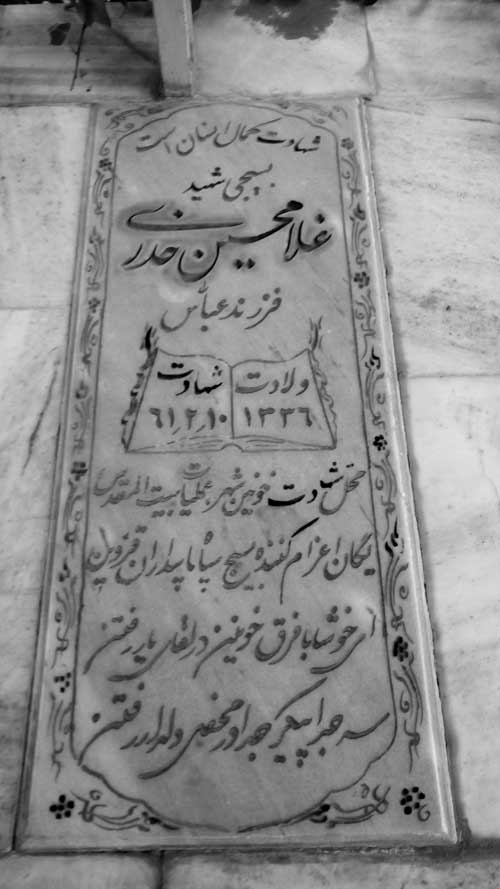 شهادت کمال انسان است
بسیجی شهید
غلامحسین حدری
فرزند عباس
ولادت شهادت
۱۳۳۶ ۶۱٫۲٫۱۰
محل شهادت خونین شهر عملیات بیت المقدس
یگان اعزام کننده بسیج سپاه پاسداران قزوین
ای خوشا با فرق خونین در لقای یار رفتن
سر جدا پیکر جدا در محضر دلدار رفتن